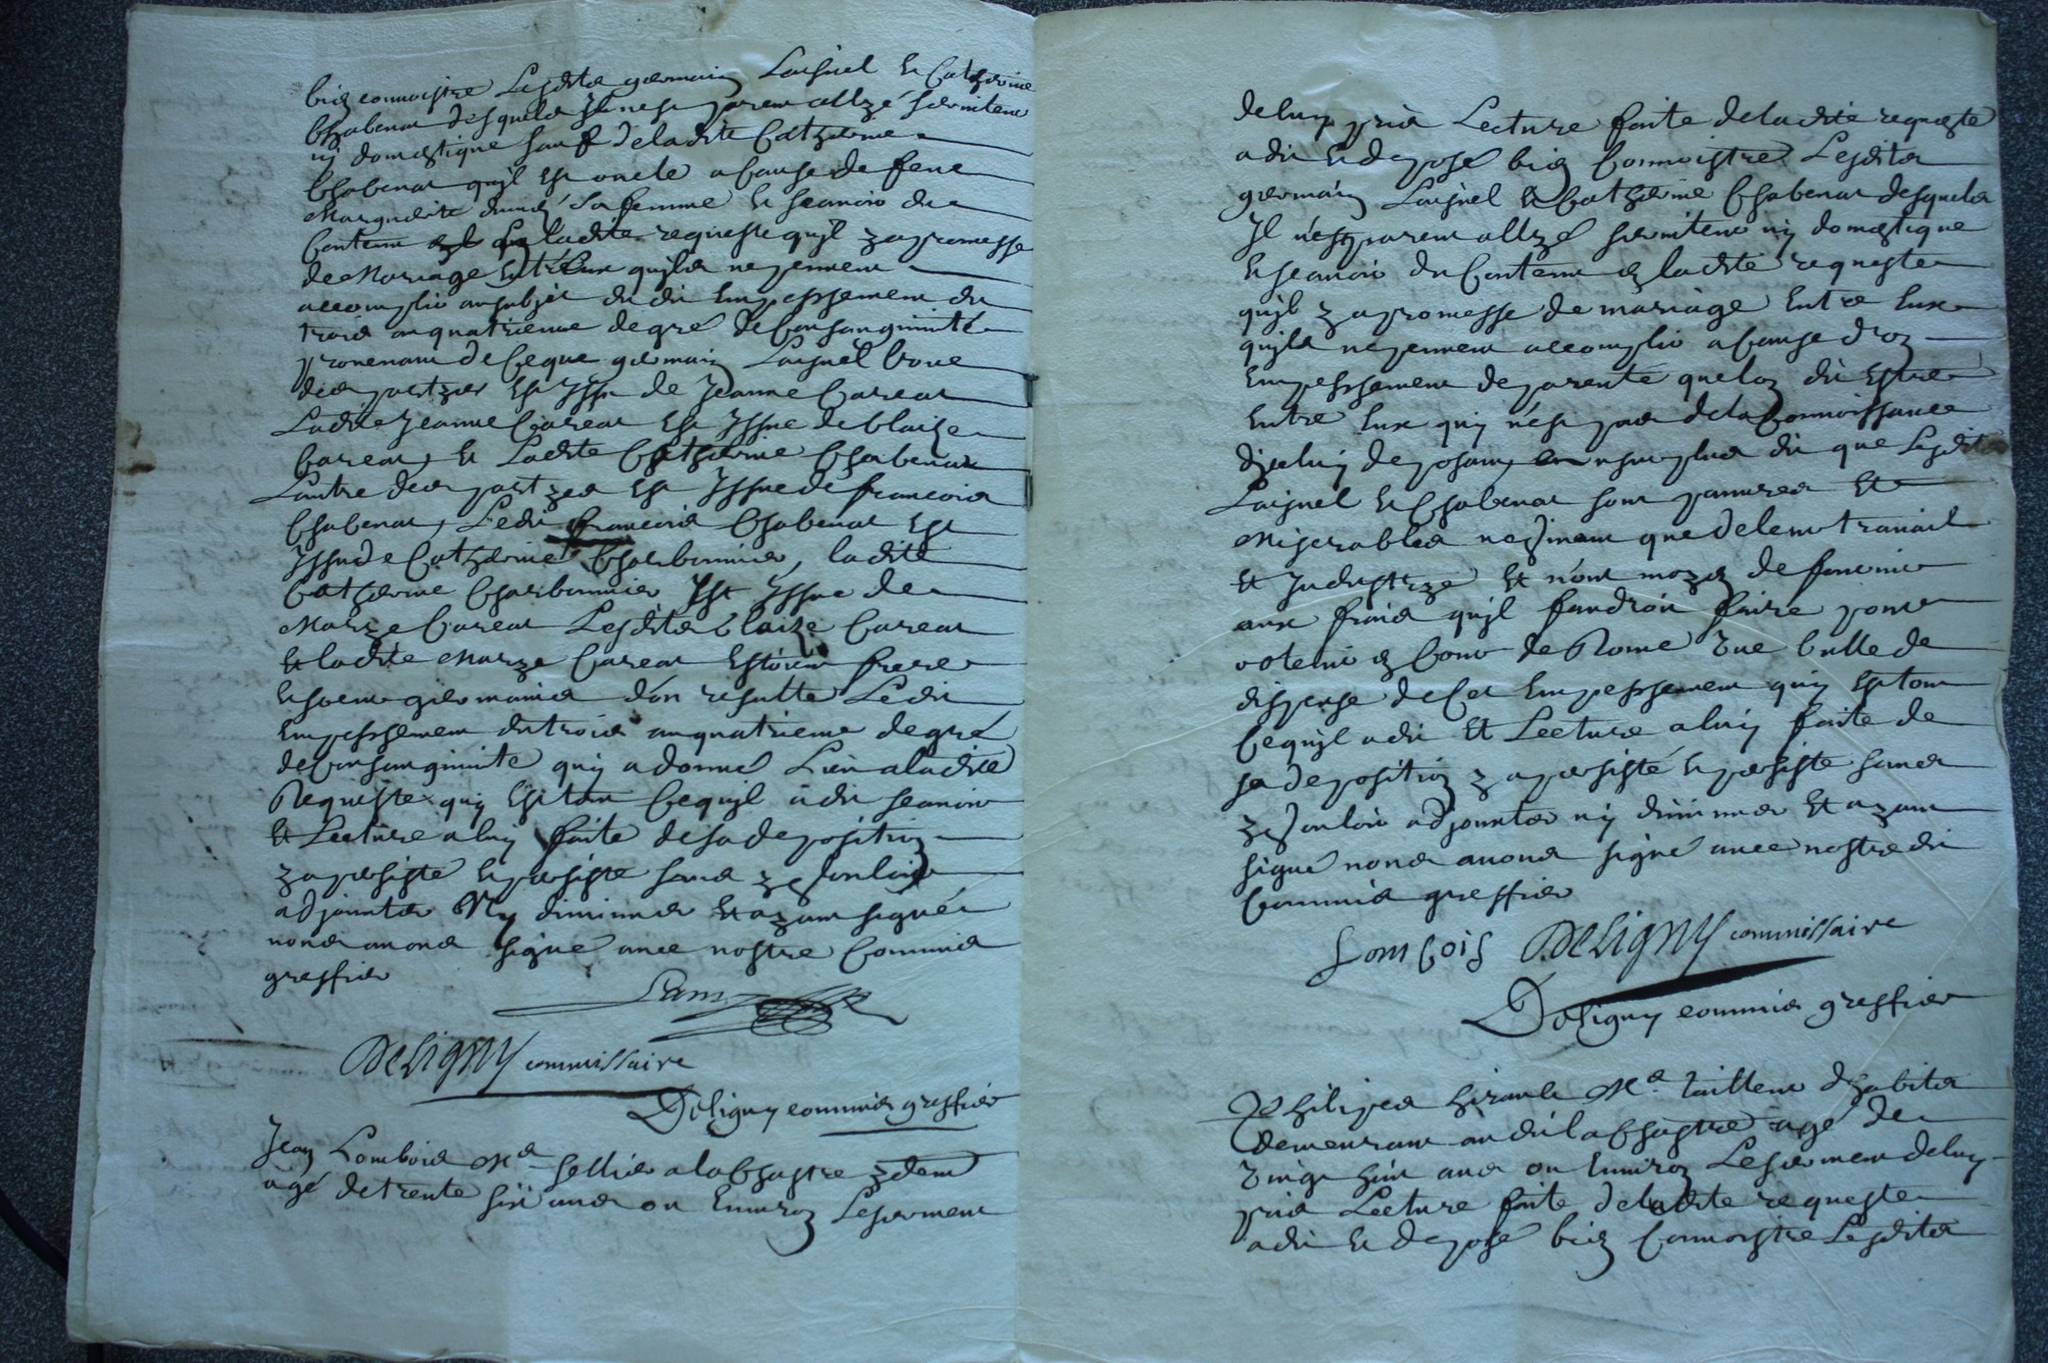 bien connoistre Lesdits germain Laisnel et Catherine
Chabenat desquels Il nest parent allyé serviteur
ny domestique sauf de ladite Catherine
Chabenat quyl est oncle a cause de feue
Marguerite sa femme et scavoir du
Contenu ladite requeste quyl y a promesse
de Mariage entreux quyls ne peuvent
accomplir au subjet du dit Empeschement du
trois au quatrieme degré de Consanguinité
provenant de ce que germain Laisnel l'une
des partyes Est Issu de Jeanne Careat
Ladite Jeanne Careat Est Issue de blaize
Careat, et Ladite Catherine Chabenat
Lautre des partyes Est Issue de francois
Chabenat, Ledit francois Chabenat Est
Issu de Catherine Charbonnier, ladite
Catherine Charbonnier Est Issue de
Marye Careat Lesdits blaize Careat
et ladite Marye Careat Estoient frere
et soeur germains d'ou resulte Ledit
Empeschement du trois au quatrieme degré
de Consanguinite quy a donné Lieu a ladite
Requeste quy Est tout Ce quyl a dit scavoir
et Lecture a luy faite de sa deposition
y a persisté et persiste sans y vouloir
adjouuter Ny diminuer et ayant signé
nous avons signé avec nostre Commis
greffier
Deligny commissaire
Deligny commis greffier
Jean Lombois Md sellier a la Chastre y dem
agé de trente six ans ou Environ Le serment
de luy pris Lecture faite de ladite requeste
a dit et deposé bien Connoistre Lesdits
germain Laisnel et Catherine Chabenat desquels
Il n'est parent allyé serviteur ny domestique
et scavoir du Contenu en ladite requeste
quyl y a promesse de mariage Entre Eux
quyls ne peuvent accomplir a Cause d'un
Empeschement de parenté que lon dit Estre
Entre Eux quy n'est pas de la Connoissance
diceluy deposant, plus dit que Lesdits
Laisnel et Chabenat sont pauvres et
Miserables ne vivent que de leur travail
et Industrye et n'ont moyen de fournir
aux frais quyl faudroit faire pour
obtenir en Cour de Rome une bulle de
dispense de Cet Empeschement quy Est tout
Ce quyl a dit et Lecture a luy faite de
sa deposition y a persisté et persiste sans
y vouloir adjouuter ny diminuer et ayant
signé nous avons signé avec nostre dit
Commis greffier
Lombois Deligny commissaire
Deligny commis greffier
Philipes Md Tailleur d'habits
demeurant au dit la Chastre agé de
vingt huit ans ou Environ Le serment de luy
pris Lecture faite de ladite requeste
a dit et deposé bien Connoistre Lesdits